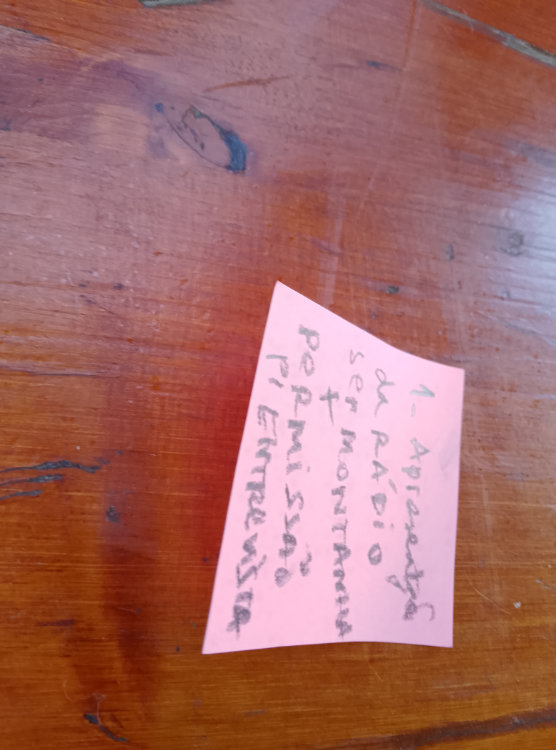 1- Apresentação
da RÁDIO
ser MONTANHA
+
PERMISSÃO
P/ ENTREVISTA